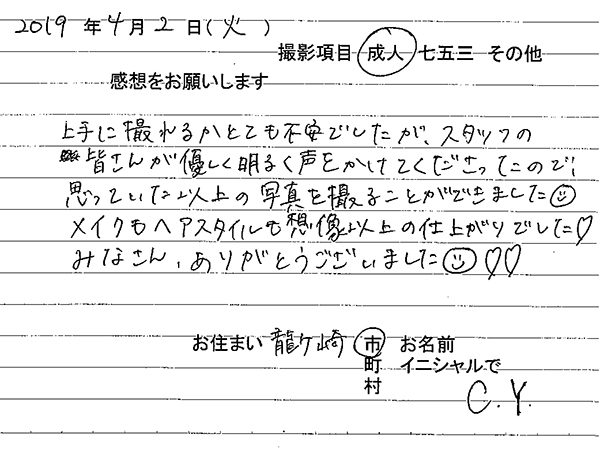 2019 年 4 月 2 日 ( 火 )
撮影項目 成人 七五三 その他
感想をお願いします
上手に撮れるかとても不安でしたが、スタッフの
皆さんが優しく明るく声をかけてくださったので、
思っていた以上の写真を撮ることができました☺
メイクもヘアスタイルも想像以上の仕上がりでした♡
みなさん、ありがとうございました☺♡♡
お住まい 龍ケ崎 市 お名前
町 イニシャルで
村 C.Y.